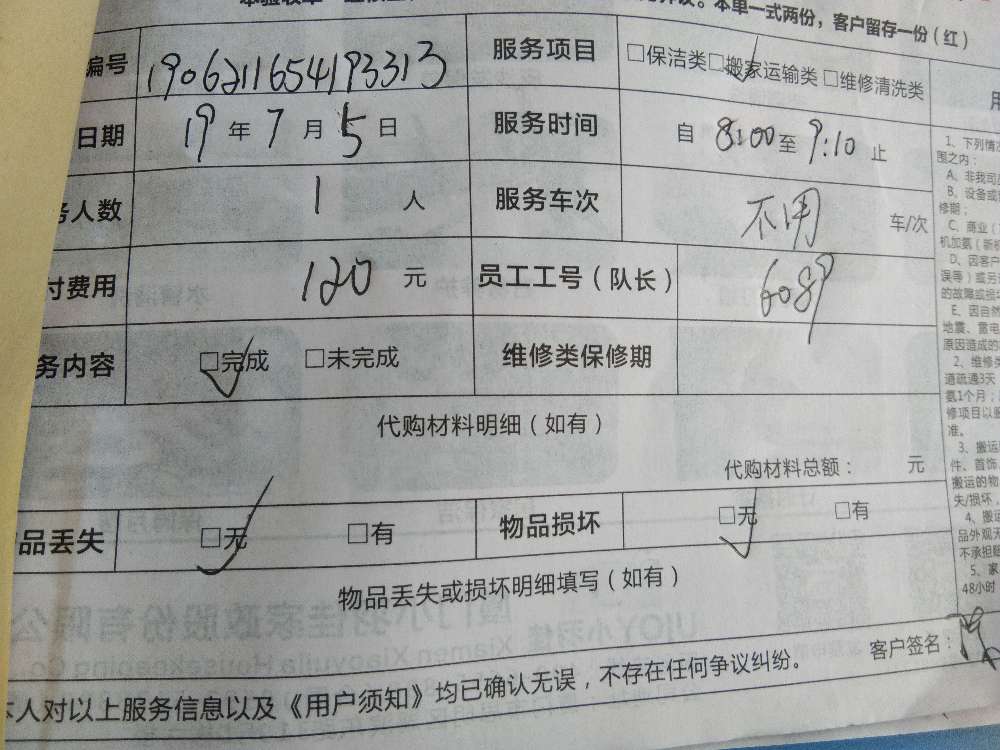 本单一式两份，客户留存一份（红）
编号 190621165419331 3 服务项目 □保洁类 □搬家运输类 □维修清洗类
日期 19 年 7 月 5 日 服务时间 自 8:00 至 9:10 止
人数 1 人 服务车次 不用 车/次
付费用 120 元 员工工号（队长） 6089
务内容 □完成 □未完成 维修类保修期
代购材料明细（如有）
代购材料总额： 元
品丢失 □无 □有 物品损坏 □无 □有
物品丢失或损坏明细填写（如有）
客户签名：
本人对以上服务信息以及《用户须知》均已确认无误，不存在任何争议纠纷。
用
1、下列情
围之内：
A、非我司
B、设备或
修期；
C、商业（
机加氨（新
D、因客户
误等）或另
的故障或损
E、因自然
地震、雷电
原因造成的
2、维修类
道疏通3天
氨1个月；
修项目以服
准。
3、搬运
件、首饰
搬运的物
失/损坏，
4、搬运
品外观无
不承担赔
5、家
48小时